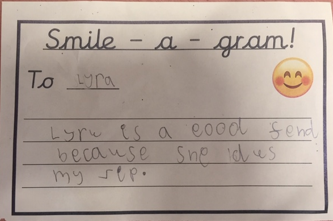 Smile - a - gram!
To Lyra
Lyru is a eood fend
because she idus
my